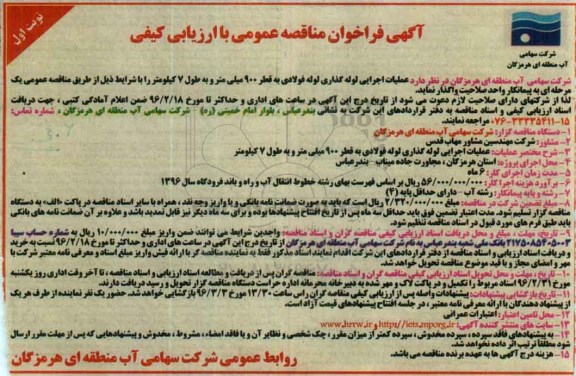 نوبت اول
آگهی فراخوان مناقصه عمومی با ارزیابی کیفی
شرکت سهامی
آب منطقه ای هرمزگان
شرکت سهامی آب منطقه ای هرمزگان در نظر دارد عملیات اجرایی لوله گذاری لوله فولادی به قطر ۹۰۰ میلی متر و به طول ۷ کیلومتر را با شرایط ذیل از طریق مناقصه عمومی یک
مرحله ای به پیمانکار واجد صلاحیت واگذار نماید.
لذا از شرکتهای دارای صلاحیت لازم دعوت می شود از تاریخ درج این آگهی در ساعت های اداری و حداکثر تا مورخ ۹۶/۲/۱۸ ضمن اعلام آمادگی کتبی ، جهت دریافت
اسناد ارزیابی کیفی و اسناد مناقصه به دفتر قراردادهای این شرکت به نشانی بندرعباس ، بلوار امام خمینی (ره) شرکت سهامی آب منطقه ای هرمزگان ، شماره تماس:
۱۵-۰۷۶-۳۳۳۳۵۴۱۱ مراجعه نمایند.
۱- دستگاه مناقصه گزار: شرکت سهامی آب منطقه ای هرمزگان
۲- مشاور: شرکت مهندسین مشاور مهاب قدس
۳- شرح مختصر عملیات: عملیات اجرایی لوله گذاری لوله فولادی به قطر ۹۰۰ میلی متر و به طول ۷ کیلومتر
۴- محل اجرای پروژه: استان هرمزگان ، مجاورت جاده میناب - بندرعباس
۵- مدت زمان اجرای کار: ۶ ماه
۶- برآورد هزینه اجرا کار: ۵۶/۰۰۰/۰۰۰/۰۰۰ ریال بر اساس فهرست بهای رشته خطوط انتقال آب و راه و باند فرودگاه سال ۱۳۹۶
۷- رشته و پایه پیمانکار: رشته آب - دارای حداقل پایه (۴)
۸- مبلغ تضمین شرکت در مناقصه: ۲/۳۲۰/۰۰۰/۰۰۰ ریال است که باید به صورت ضمانت نامه بانکی و یا واریز وجه نقد ، همراه با سایر اسناد مناقصه در پاکت «الف» به دستگاه
مناقصه گزار تسلیم شود. مدت اعتبار تضمین فوق باید حداقل سه ماه پس از تاریخ افتتاح پیشنهادها بوده و برای سه ماه دیگر نیز قابل تمدید باشد و علاوه بر آن ضمانت نامه های بانکی
باید طبق فرم های مورد قبول در اسناد مناقصه تنظیم شود.
۹- تاریخ، مهلت ، مبلغ و محل دریافت اسناد ارزیابی کیفی مناقصه گران و اسناد مناقصه: واجدین شرایط می توانند ضمن واریز مبلغ ۱۰/۰۰۰/۰۰۰ ریال به شماره حساب سیبا
۲۱۷۵۰۸۵۴۰۵۰۰۳ بانک ملی شعبه بندرعباس به نام شرکت سهامی آب منطقه ای هرمزگان از تاریخ درج این آگهی در ساعت های اداری و حداکثر تا مورخ ۹۶/۲/۱۸ نسبت به خرید
و دریافت اسناد ارزیابی و اسناد مناقصه از دفتر قراردادهای این شرکت اقدام نمایند. اسناد مذکور فقط به نماینده مناقصه گر با ارائه فیش واریز مبلغ اسناد و معرفی نامه معتبر شرکت با
مهر و امضای مجاز و با قید موضوع مناقصه تحویل خواهد شد.
۱۰- تاریخ، مهلت و محل تحویل اسناد ارزیابی کیفی مناقصه گران و اسناد مناقصه: مناقصه گران پس از دریافت و مطالعه اسناد ارزیابی و اسناد مناقصه ، تا آخر وقت اداری روز یکشنبه
مورخ ۹۶/۲/۳۱ اسناد مربوط را تکمیل و در پاکت لاک و مهر شده به دبیرخانه محرمانه اداره حراست دستگاه مناقصه گزار تحویل و رسید دریافت دارند.
۱۱- تاریخ بازگشایی پیشنهادات: پیشنهادات واصله پس از ارزیابی کیفی مناقصه گران راس ساعت ۱۳/۳۰ مورخ ۹۶/۳/۳ بازگشایی خواهد شد. حضور یک نفر نماینده از طرف هر یک
از پیشنهاد دهندگان با ارائه معرفی نامه معتبر ، در جلسه افتتاح پیشنهادهای قیمت آزاد است.
۱۲- محل تامین اعتبار: اعتبارات عمرانی
۱۳- سایت های منتشر کننده آگهی: http://iets.mporg.ir و www.hrrw.ir
۱۴- به پیشنهادهای فاقد سپرده ، سپرده مخدوش ، سپرده کمتر از میزان مقرر ، چک شخصی و نظایر آن و یا فاقد امضاء ، مشروط ، مخدوش و پیشنهادهایی که پس از مهلت مقرر ارسال
شود مطلقاً ترتیب اثر داده نخواهد شد.
۱۵- هزینه درج آگهی ها به عهده برنده مناقصه می باشد.
روابط عمومی شرکت سهامی آب منطقه ای هرمزگان